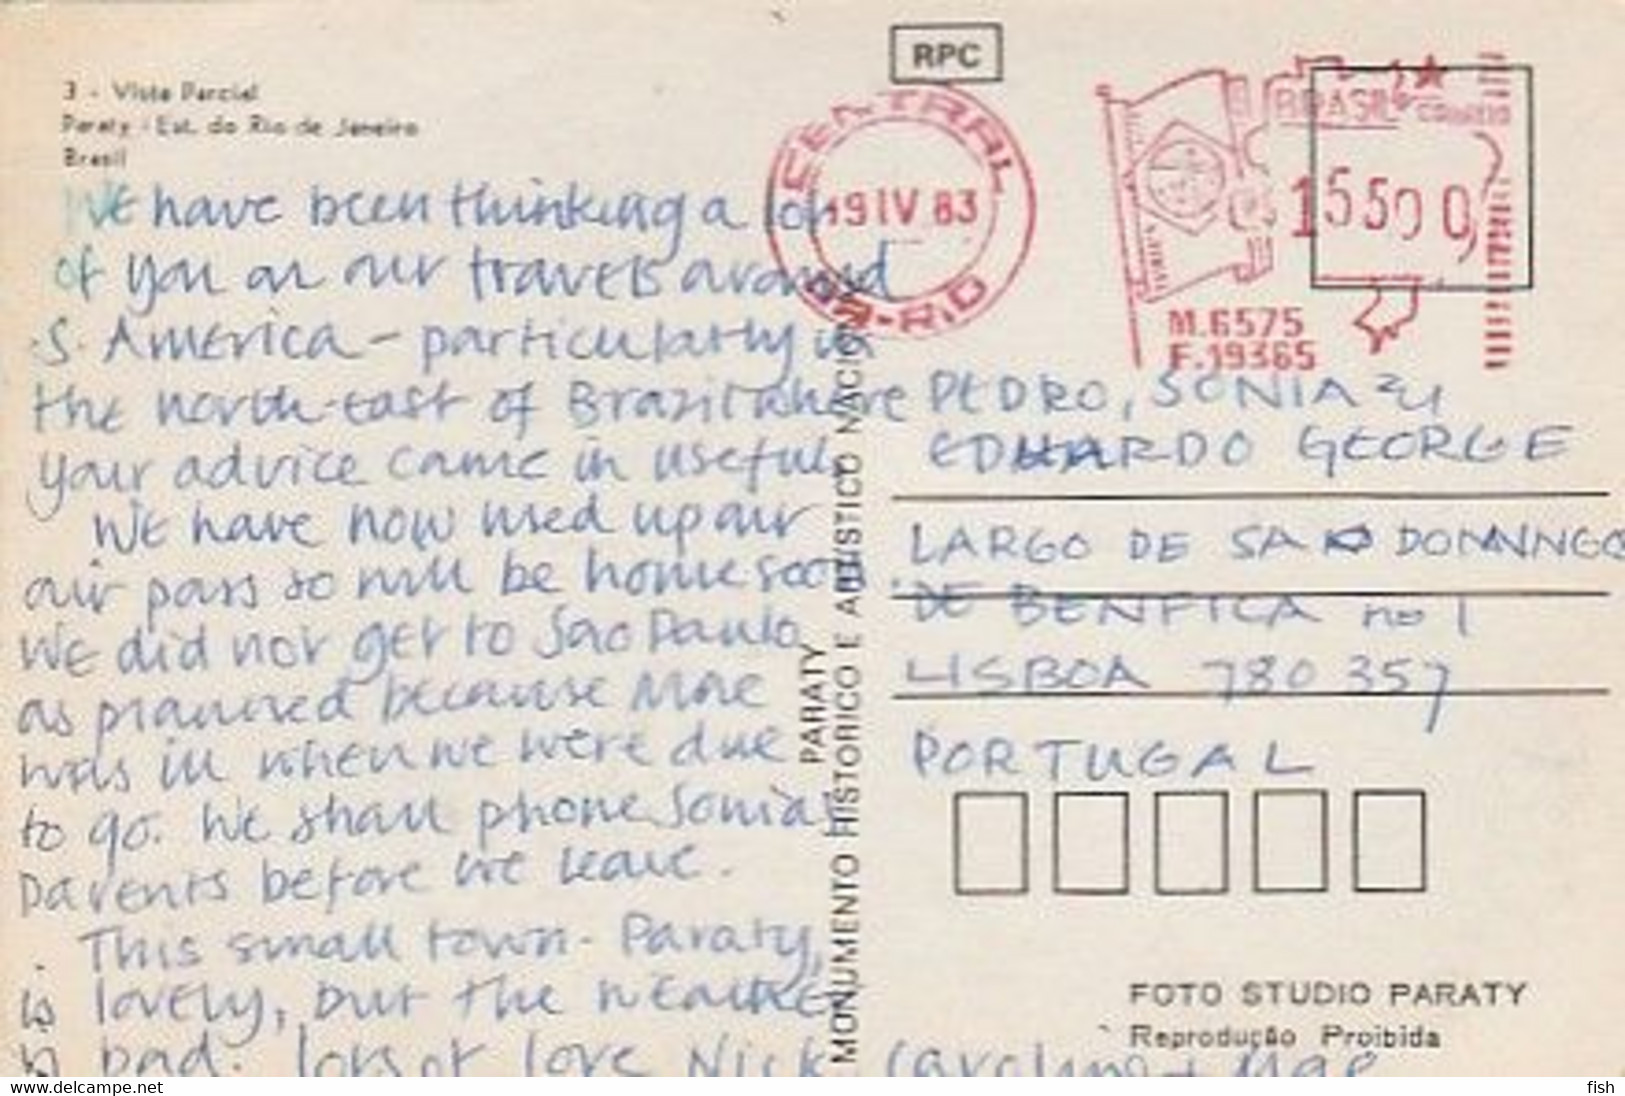 3 - Vista Parcial
Paraty - Est. do Rio de Janeiro
Brasil
We have been thinking a lot
of you on our travels around
S. America - particularly in
the north-east of Brazil where
your advice came in useful.
We have now used up our
air pass so will be home soon.
We did not get to Sao Paulo
as planned because
was ill when we were due
to go. We shall phone Sonia's
parents before we leave.
This small town - Paraty,
is lovely, but the weather
is bad. lots of love Nick Caroline +
RPC
CENTRAL
19 IV 83
DR-RIO
BRASIL CORREIO
15500
M.6575
F.19365
PEDRO, SONIA
EDUARDO GEORGE
LARGO DE SAO DOMINGOS
DE BENFICA no 1
LISBOA 780 357
PORTUGAL
PARATY
MONUMENTO HISTORICO E ARTISTICO NACIO
FOTO STUDIO PARATY
Reprodução Proibida
www.delcampe.net
fish